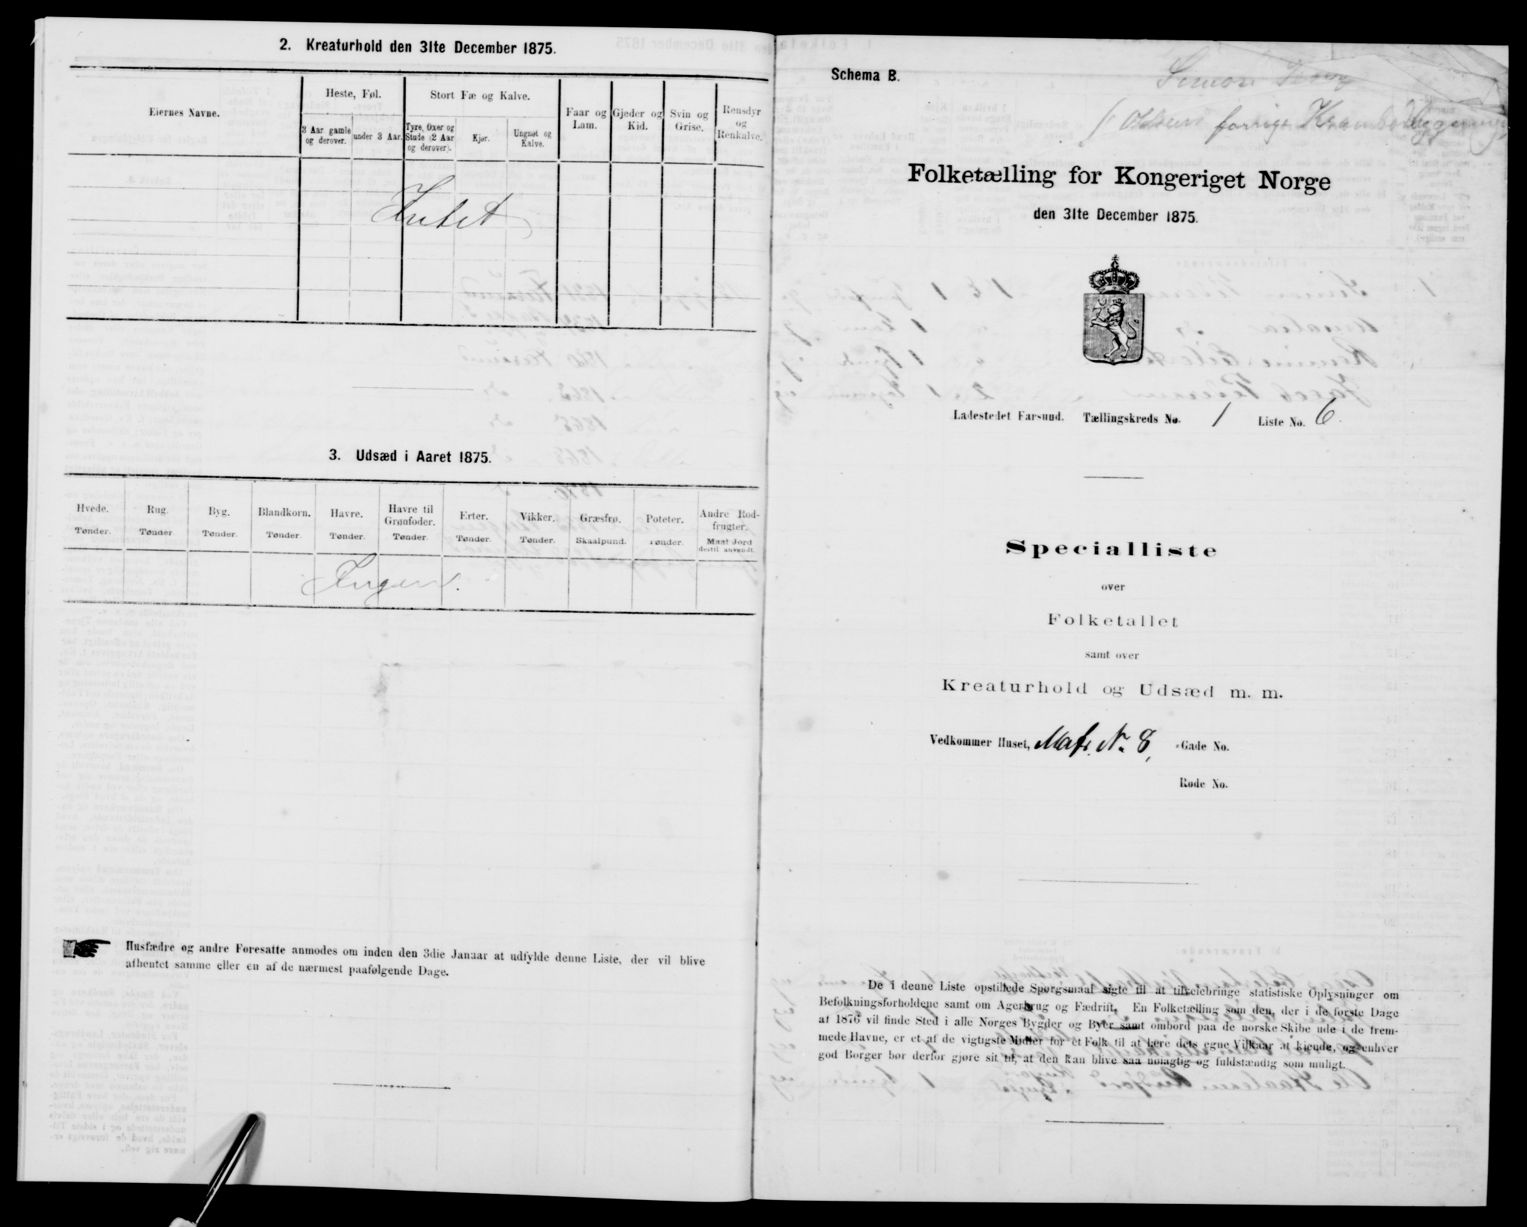 2. Kreaturhold den 31te December 1875.
Eiernes Navne.
Heste, Føl.
Stort Fæ og Kalve.
Faar og Lam.
Gjeder og Kid.
Svin og Grise.
Rensdyr og Renkalve.
3 Aar gamle og derover.
under 3 Aar.
Tyre, Oxer og Stude (2 Aar og derover).
Kjør.
Ungnøt og Kalve.
Intet
3. Udsæd i Aaret 1875.
Hvede.
Rug.
Byg.
Blandkorn.
Havre.
Havre til Grønfoder.
Erter.
Vikker.
Græsfrø.
Poteter.
Andre Rodfrugter.
Tønder.
Tønder
Tønder.
Tønder.
Tønder.
Tønder.
Tønder.
Tønder.
Skaalpund.
Tønder.
Maal Jord dertil anvendt.
Ingen.
Husfædre og andre Foresatte anmodes om inden den 3die Januar at udfylde denne Liste, der vil blive
afhentet samme eller en af de nærmest paafølgende Dage.
Schema B.
Simon
forrige
Folketælling for Kongeriget Norge
den 31te December 1875.
Ladestedet Farsund. Tællingskreds No. 1 Liste No. 6.
Specialliste
over
Folketallet
samt over
Kreaturhold og Udsæd m. m.
Vedkommer Huset, Matr. N. 8, Gade No.
Rode No.
De i denne Liste opstillede Spørgsmaal sigte til at tilveiebringe statistiske Oplysninger om
Befolkningsforholdene samt om Agerbrug og Fædrift. En Folketælling som den, der i de første Dage
af 1876 vil finde Sted i alle Norges Bygder og Byer samt ombord paa de norske Skibe ude i de frem-
mede Havne, er et af de vigtigste Midler for et Folk til at lære dets egne Vilkaar at kjende, og enhver
god Borger bør derfor gjøre sit til, at den kan blive saa nøiagtig og fuldstændig som muligt.